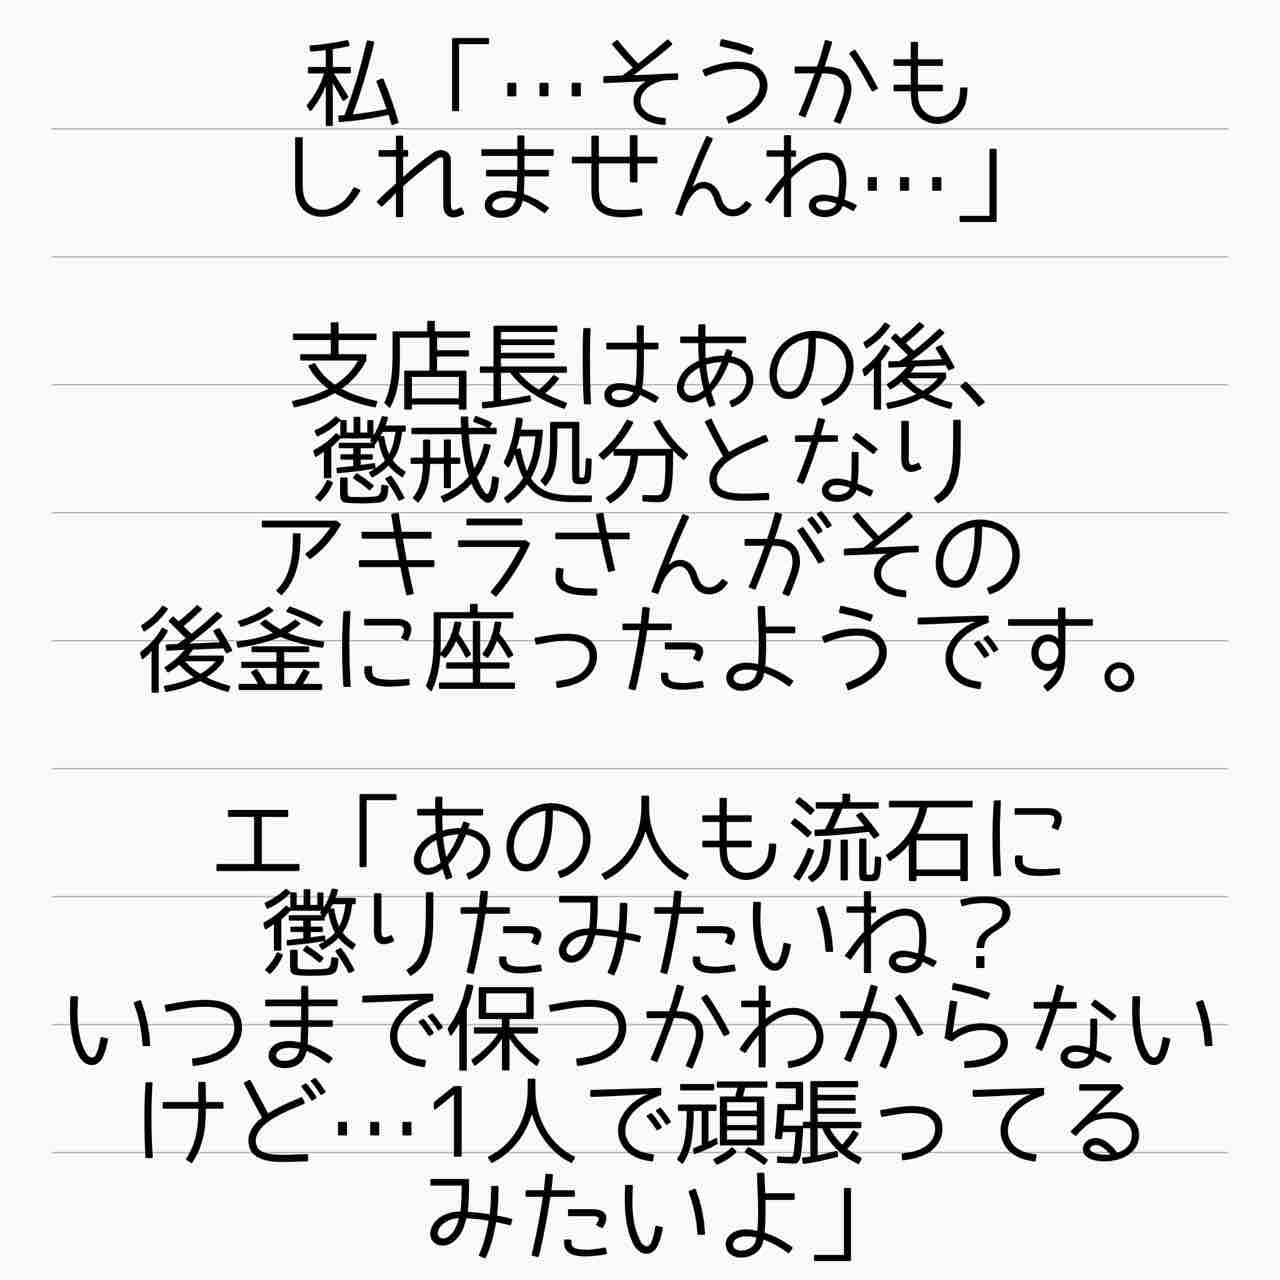 私「…そうかも
しれませんね…」
支店長はあの後、
懲戒処分となり
アキラさんがその
後釜に座ったようです。
エ「あの人も流石に
懲りたみたいね?
いつまで保つかわからない
けど…1人で頑張ってる
みたいよ」